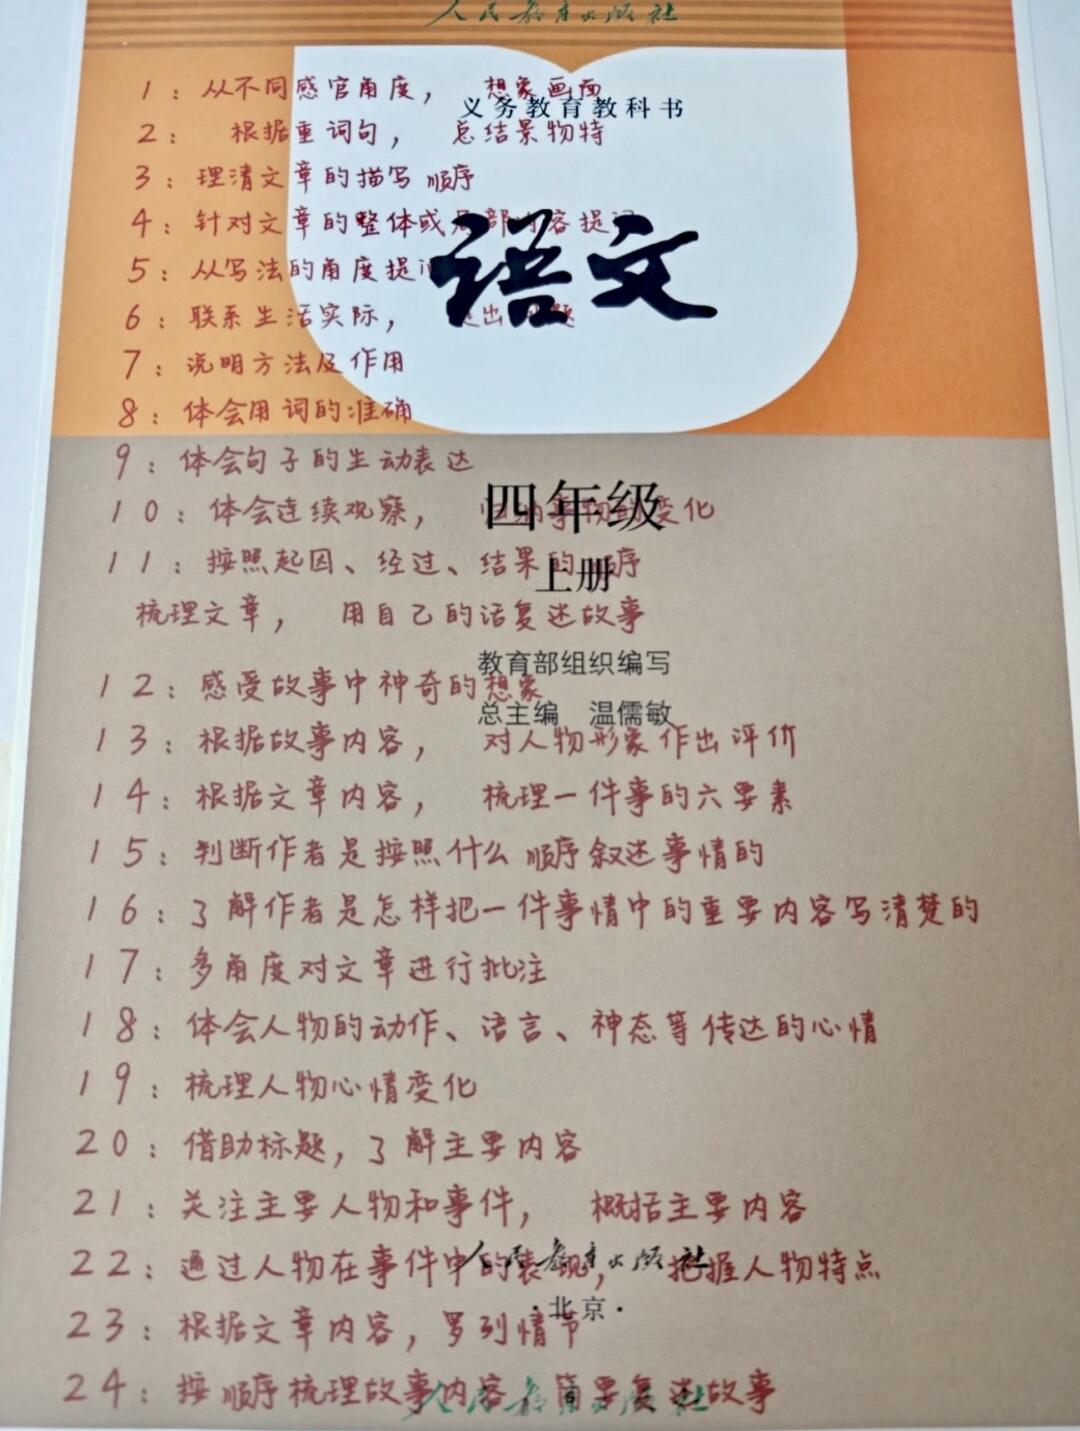 人民教育出版社
1：从不同感官角度， 想象画面
义务教育教科书
2： 根据重词句， 总结景物特
3：理清文章的描写顺序
4：针对文章的整体或局部内容提
语文
5：从写法的角度提
6：联系生活实际， 提出 题
7：说明方法及作用
8：体会用词的准确
9：体会句子的生动表达
四年级
10：体会连续观察， 归纳事物的变化
11：按照起因、经过、结果的顺序
上册
梳理文章， 用自己的话复述故事
教育部组织编写
12：感受故事中神奇的想象
总主编 温儒敏
13：根据故事内容， 对人物形象作出评价
14：根据文章内容， 梳理一件事的六要素
15：判断作者是按照什么顺序叙述事情的
16：了解作者是怎样把一件事情中的重要内容写清楚的
17：多角度对文章进行批注
18：体会人物的动作、语言、神态等传达的心情
19：梳理人物心情变化
20：借助标题，了解主要内容
21：关注主要人物和事件， 概括主要内容
人民教育出版社
22：通过人物在事件中的表现， 把握人物特点
·北京·
23：根据文章内容，罗列情节
24：按顺序梳理故事内容 简要复述故事
人民教育出版社